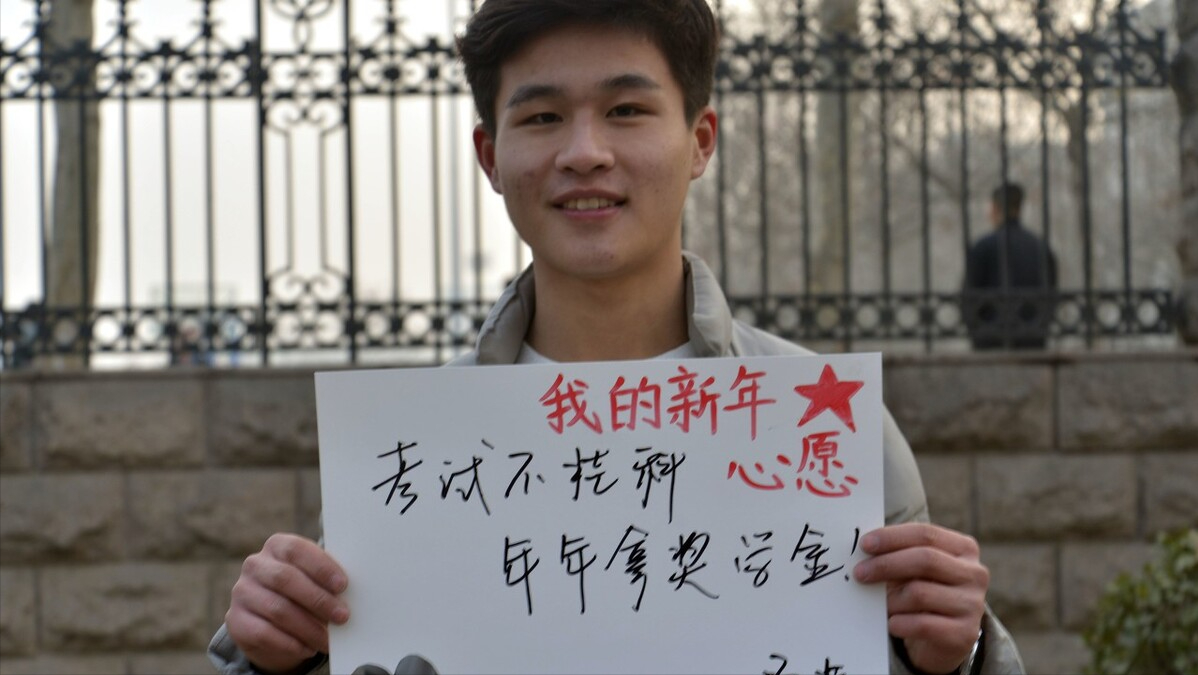 我的新年
心愿
考试不挂科
年年拿奖学金!